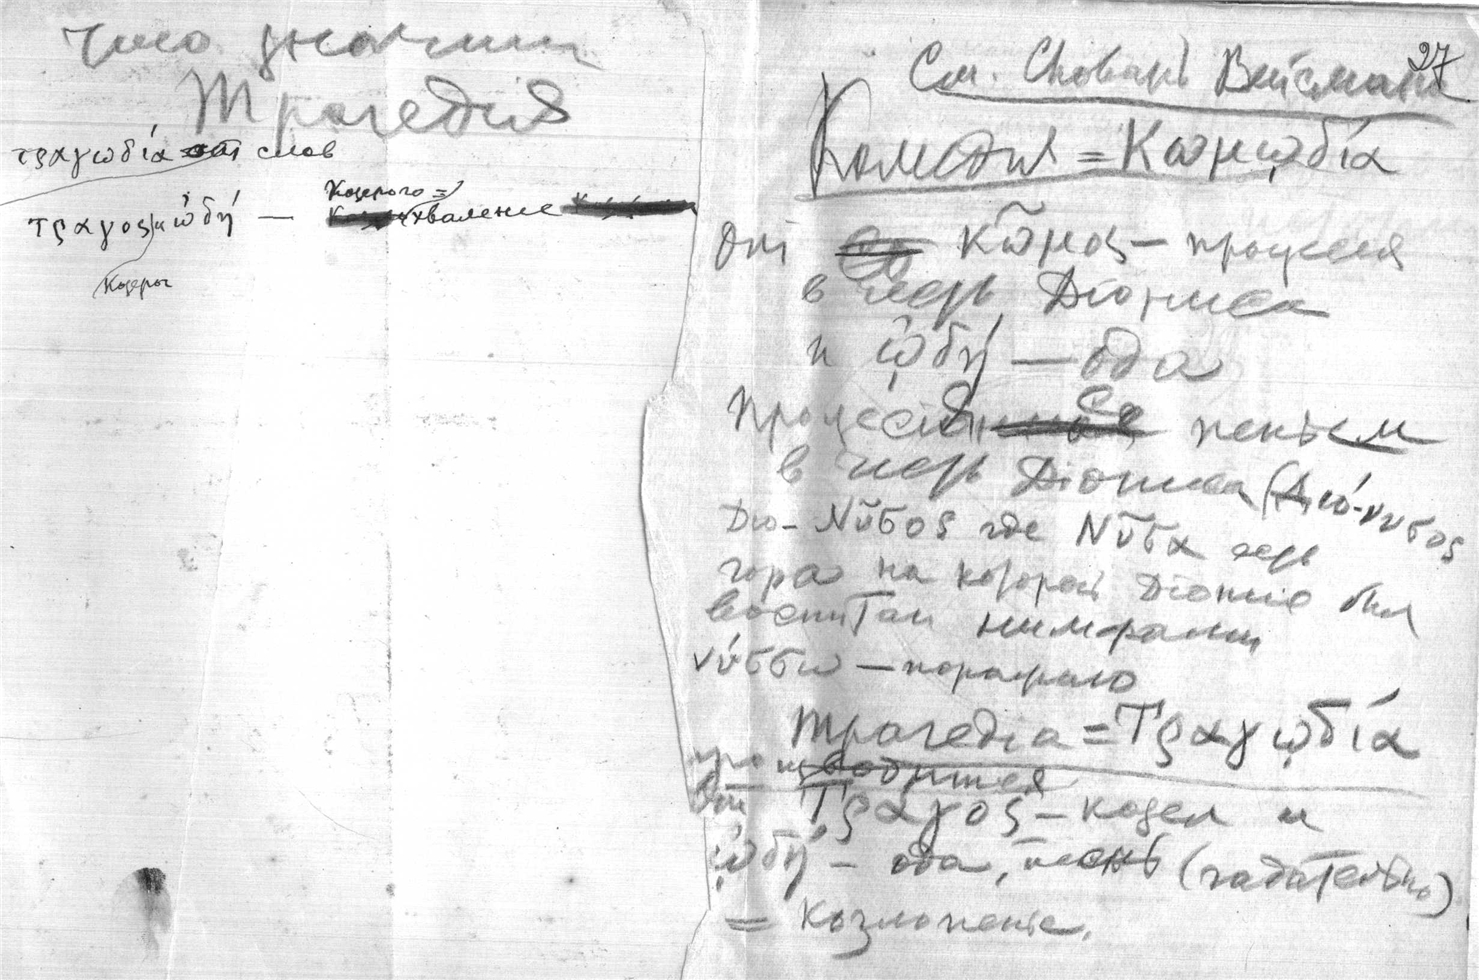 что значит
Трагедия
τραγωδία от слов
τραγος и ᾠδή — Козерога =) восхваление
Козерог
27
См. Словарь Вейсмана
Комедия = Κωμῳδία
от κῶμος — процессия
в честь Діониса
и ᾠδή — ода
процессия с пеньем
в честь Діониса (Διό-νυσος
Дιο-Νῦσος где Νῦσα есть
гора на которой Діонис был
воспитан нимфами
νύσσω — поражаю
Трагедіа = Τραγῳδία
производится
от Τράγος — козел и
ᾠδή — ода, песнь (гадательно)
= козлопение.